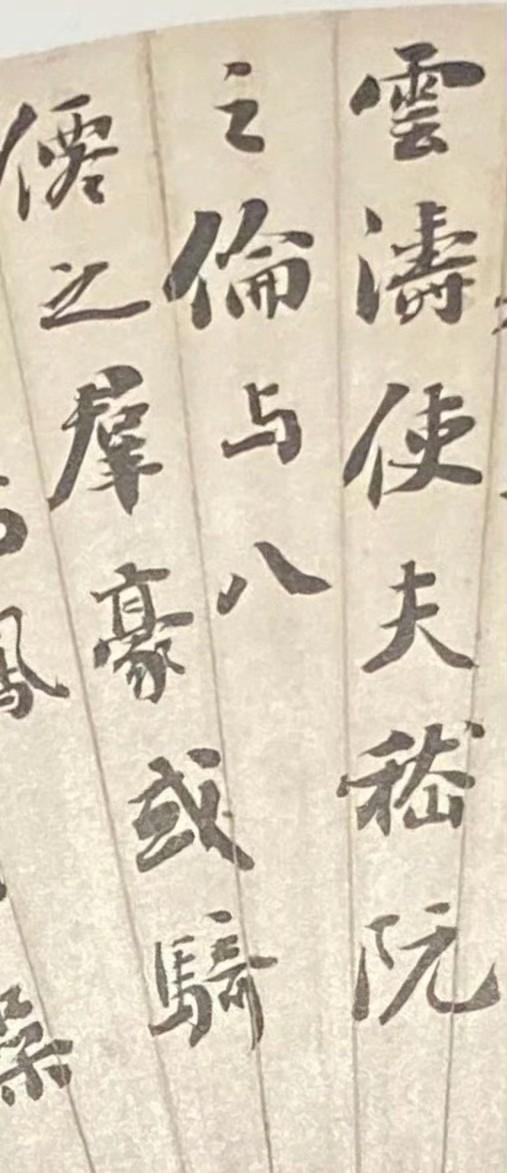 雲濤使夫嵇阮
之倫与八
僊之羣豪或騎
鳳